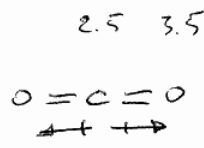 2.5 3.5
O=C=O